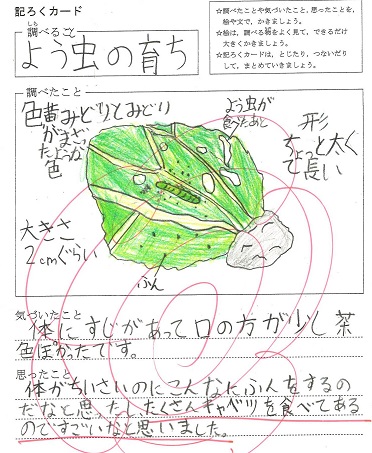 記ろくカード
しら
調べること
よう虫の育ち
☆調べたことや気づいたこと、思ったことを、
絵や文で、かきましょう。
☆絵は、調べる物をよく見て、できるだけ
大きくかきましょう。
☆記ろくカードは、とじたり、つないだり
して、まとめていきましょう。
調べたこと
色黄みどりとみどり
がまざっ
たような
色
よう虫が
食べたあと
形
ちょっと太く
て長い
大きさ
2cmぐらい
ふん
気づいたこと
体にすじがあって口の方が少し茶
色ぽかったです。
思ったこと
体がちいさいのにこんなにふんをするの
だなと思ったし、たくさんキャベツを食べてある
のですごいなと思いました。